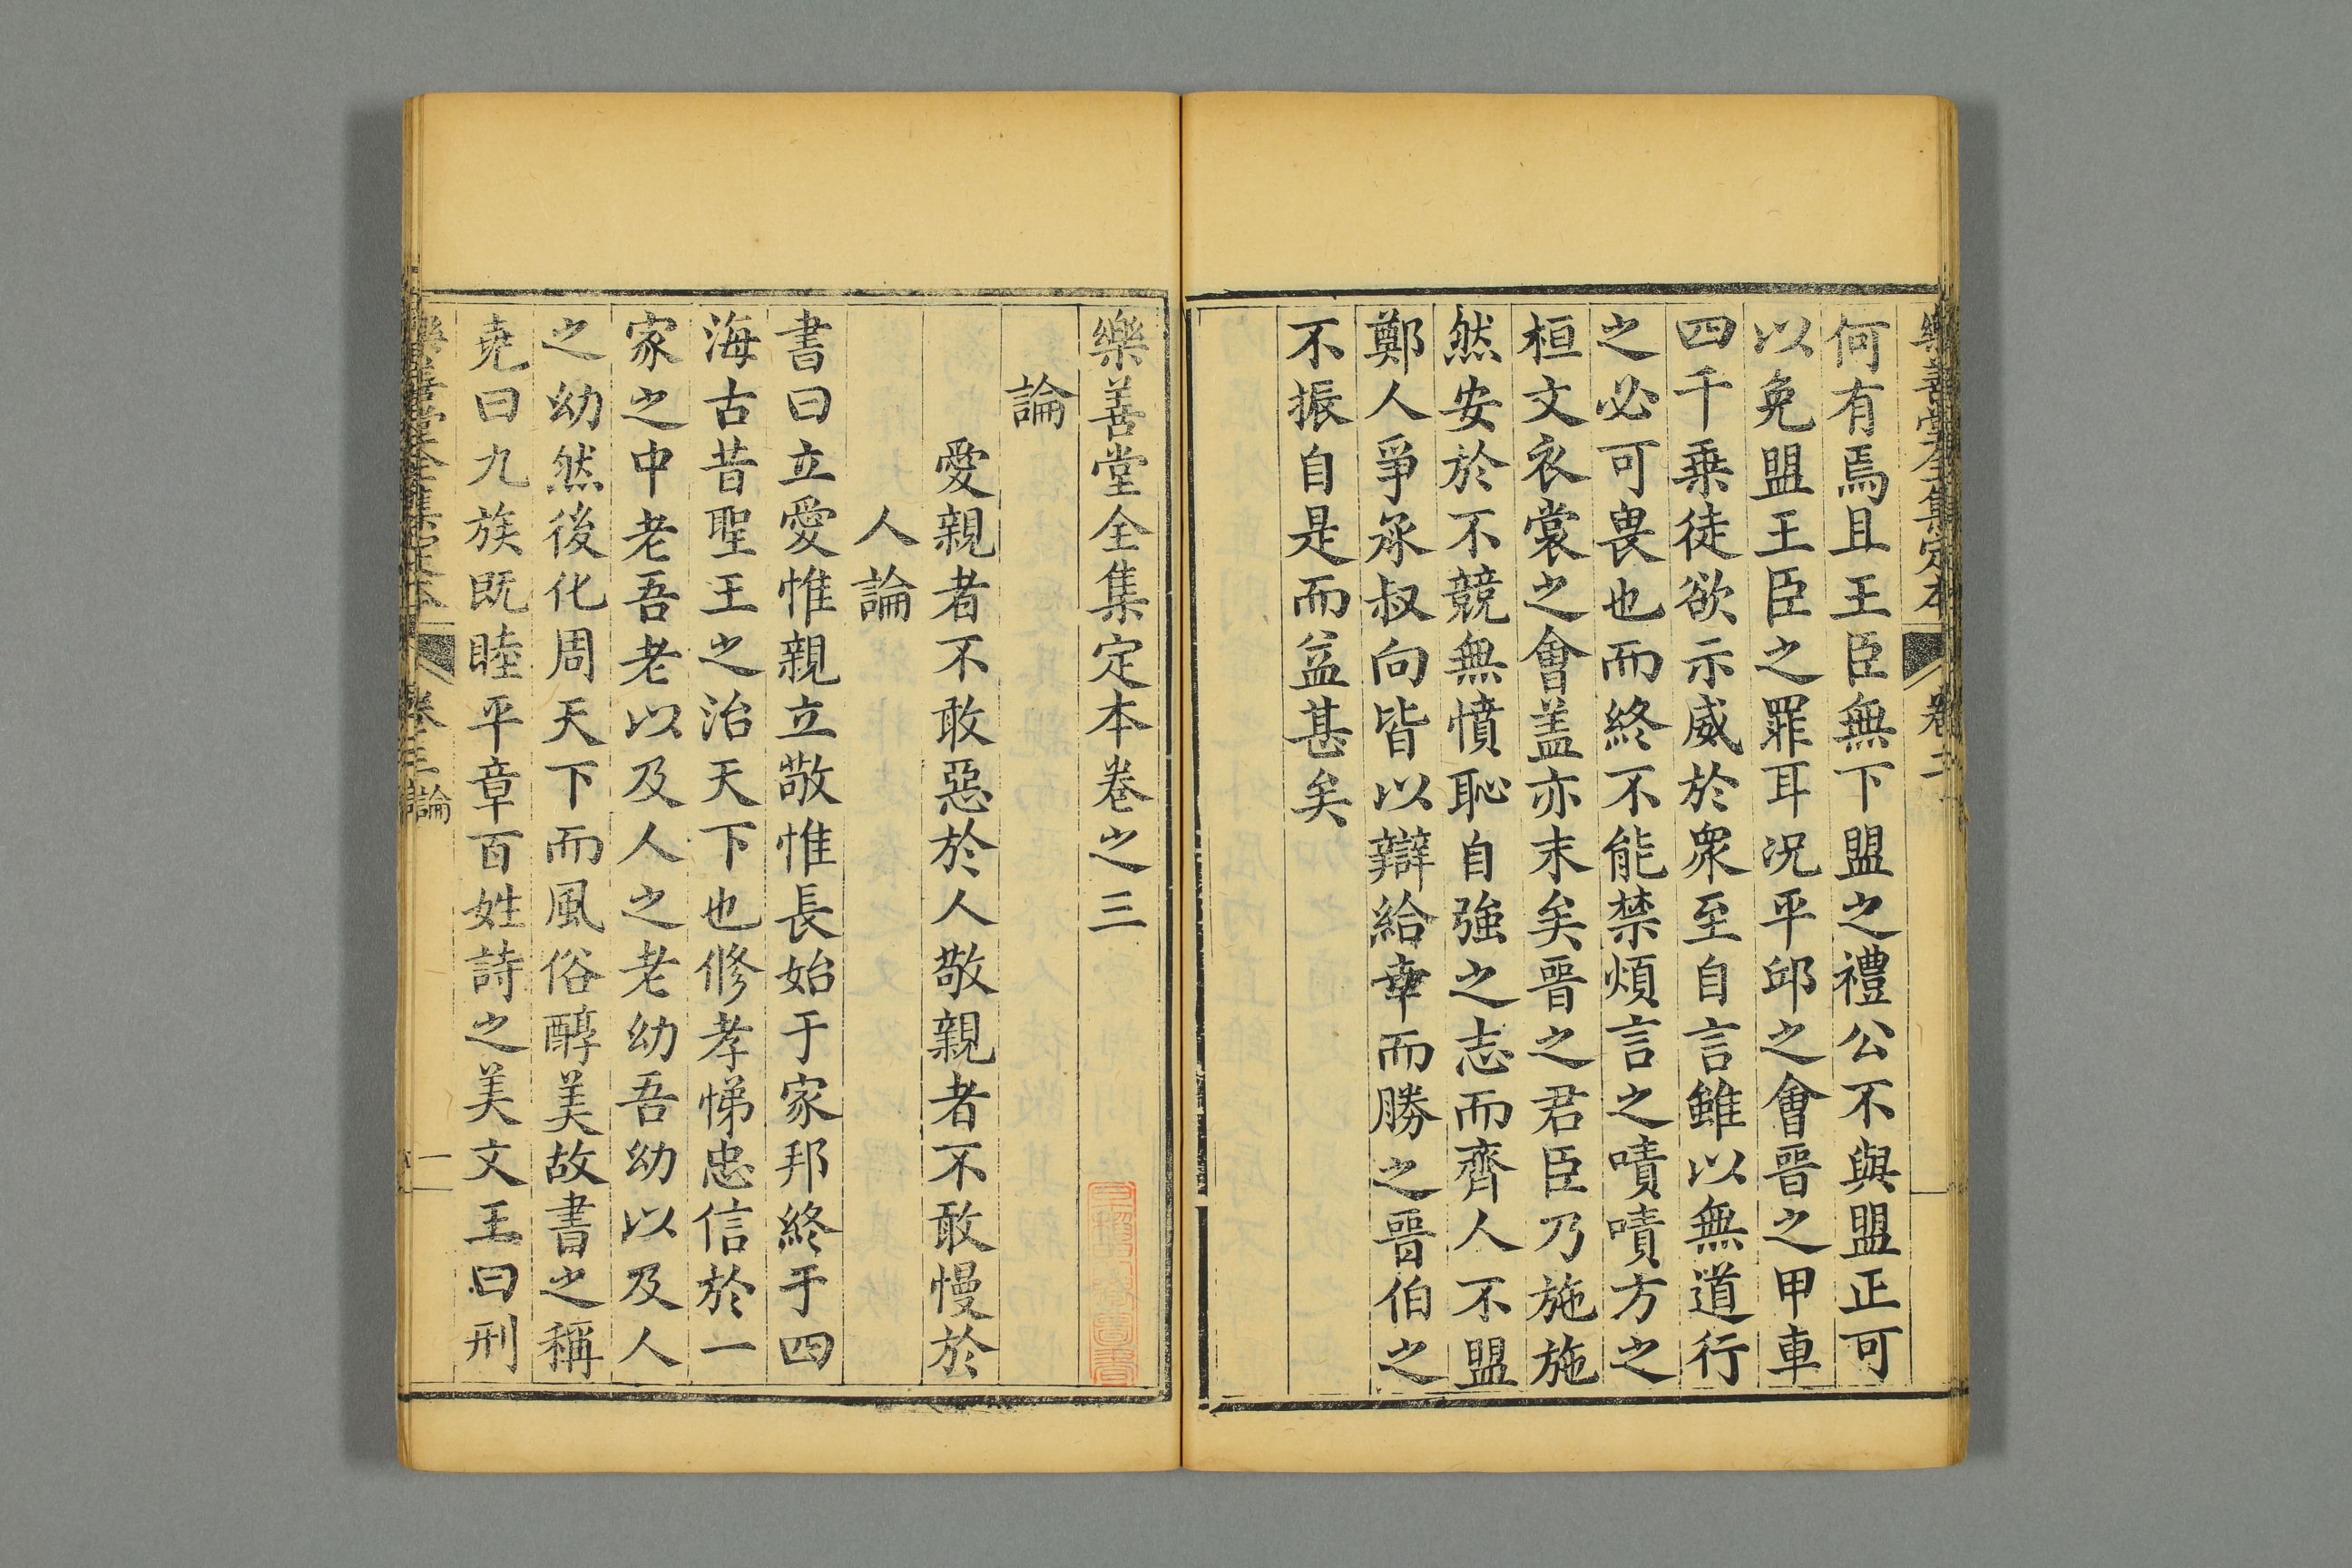 樂善堂全集定本 卷二
何有焉且王臣無下盟之禮公不與盟正可
以免盟王臣之罪耳况平邱之會晉之甲車
四千乗徒欲示威於衆至自言雖以無道行
之必可畏也而終不能禁煩言之嘖嘖方之
桓文衣裳之會盖亦末矣晉之君臣乃施施
然安於不競無憤恥自強之志而齊人不盟
鄭人爭承叔向皆以辯給幸而勝之晉伯之
不振自是而益甚矣
樂善堂全集定本卷之三
論
愛親者不敢惡於人敬親者不敢慢於
人論
書曰立愛惟親立敬惟長始于家邦終于四
海古昔聖王之治天下也修孝悌忠信於一
家之中老吾老以及人之老幼吾幼以及人
之幼然後化周天下而風俗醇美故書之稱
堯曰九族既睦平章百姓詩之美文王曰刑
樂善堂全集定本 卷三論 一